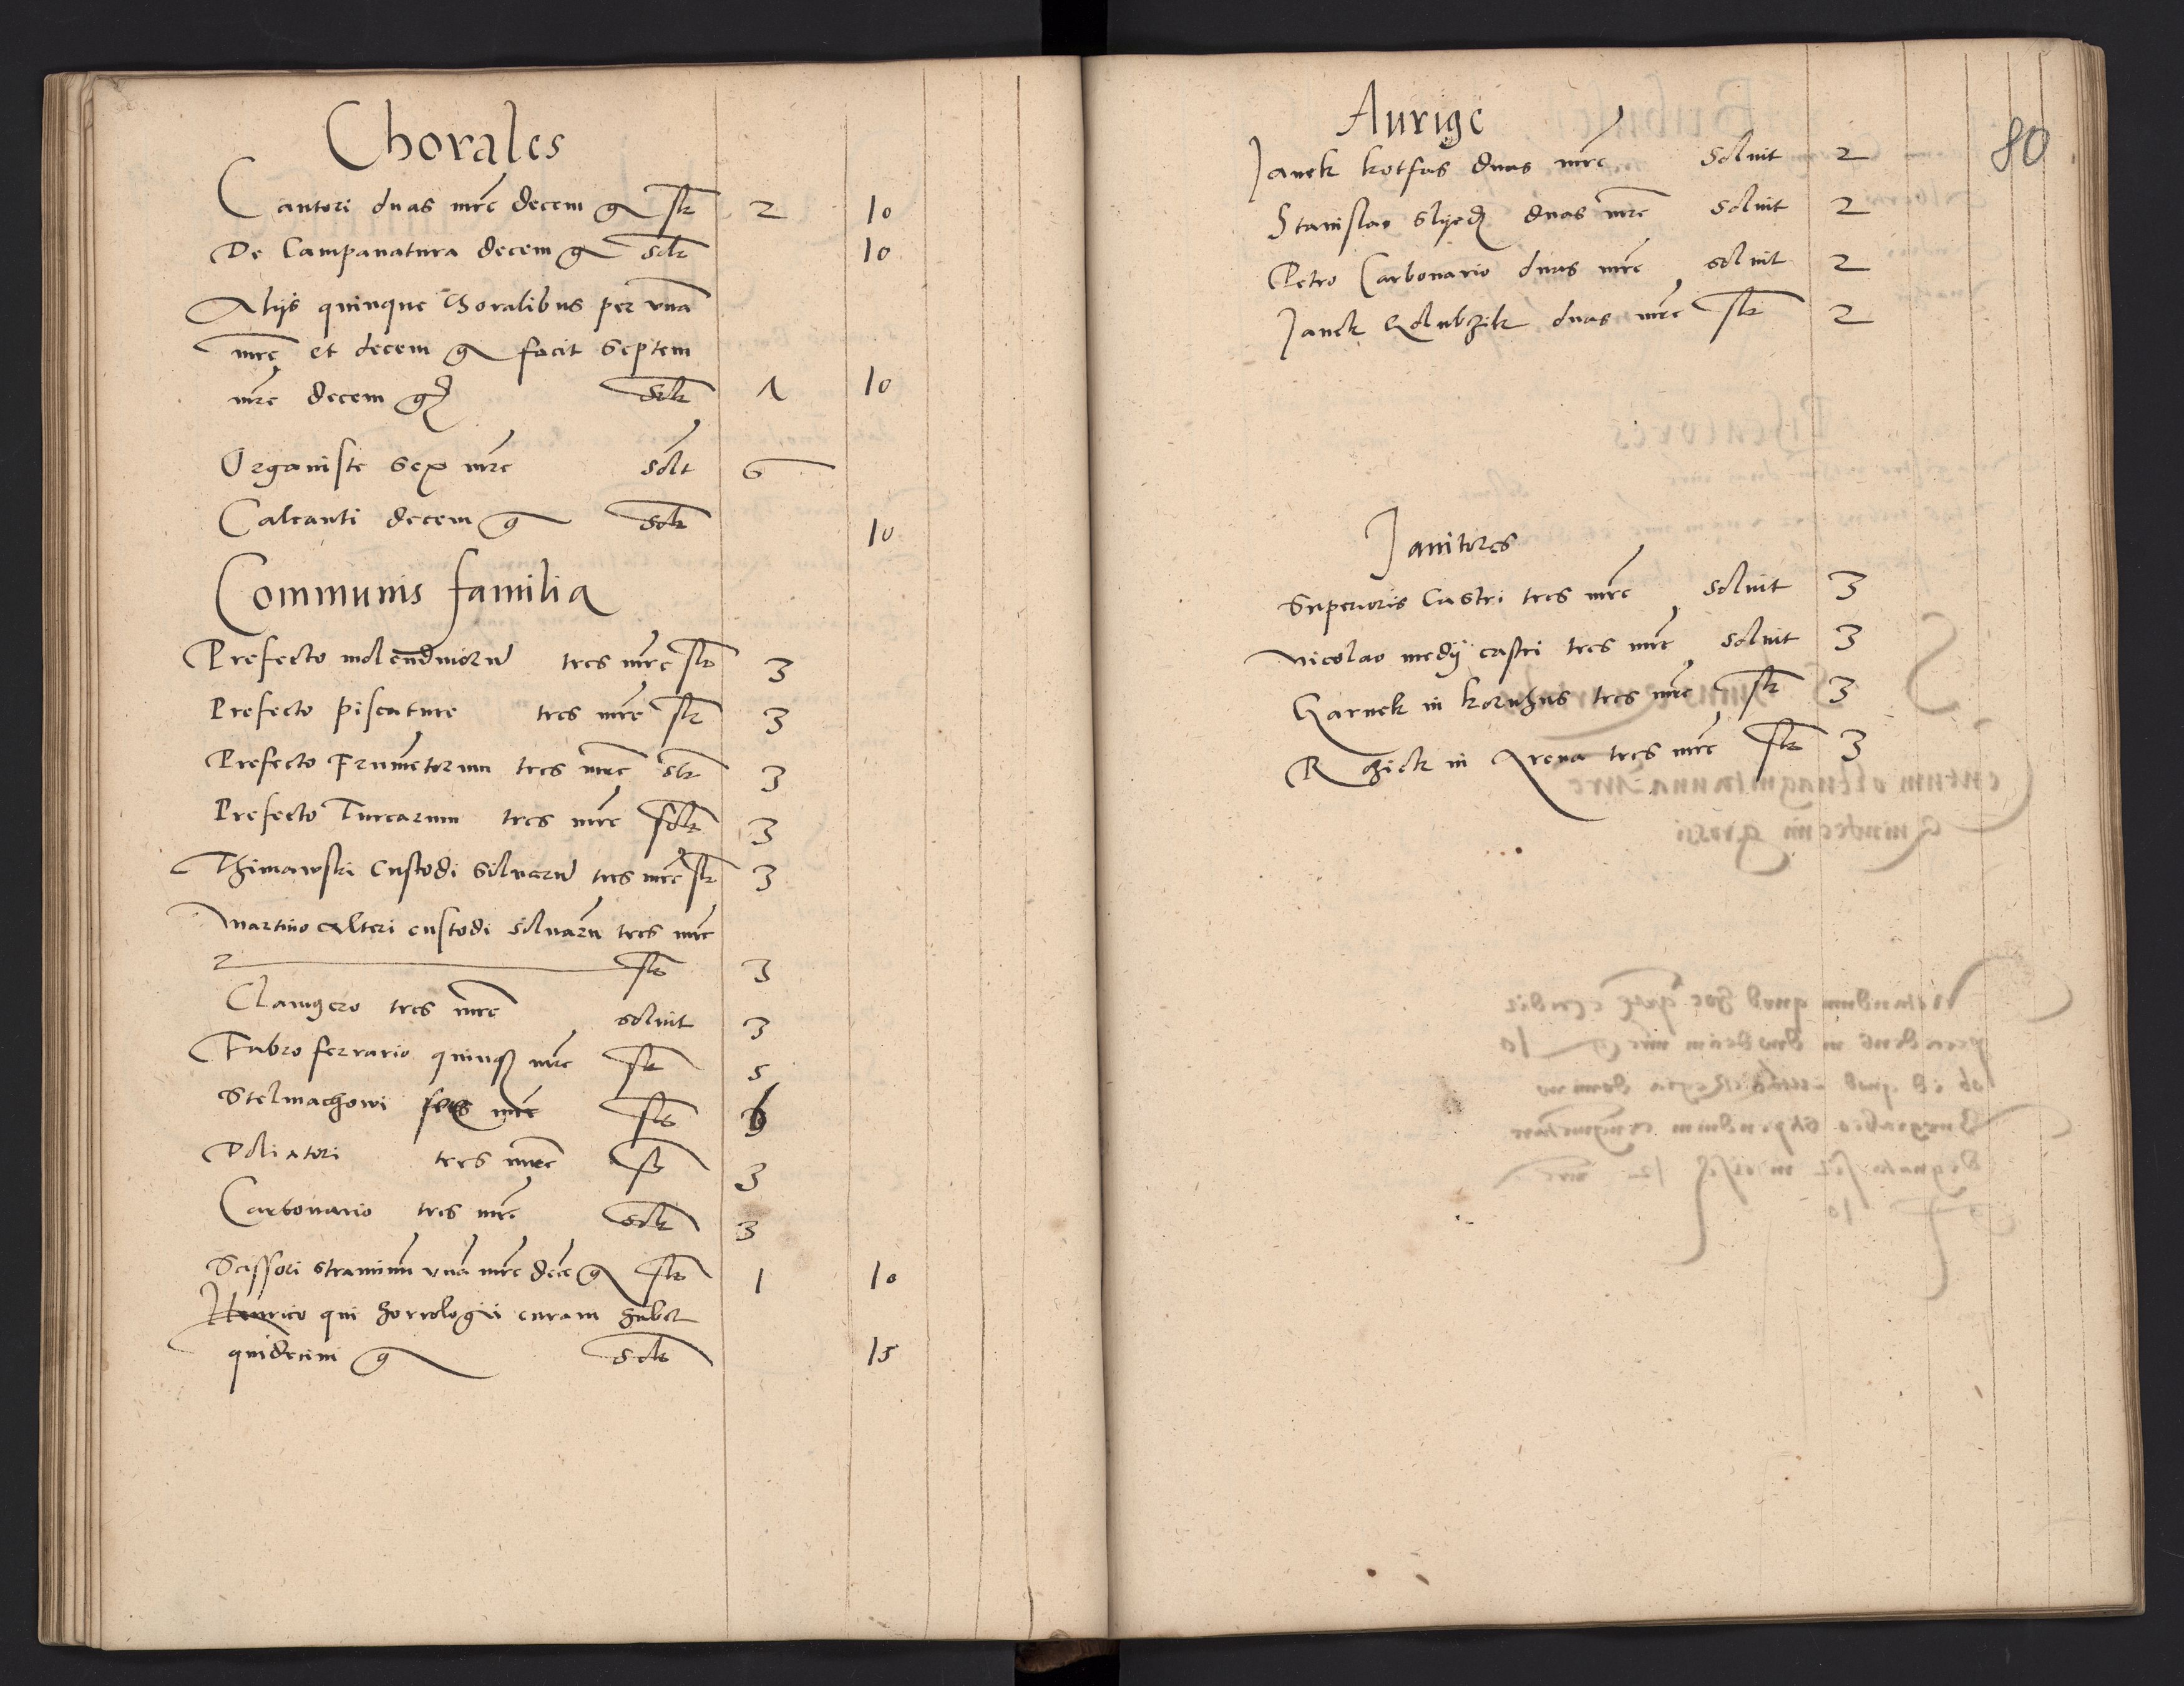 Chorales
Cantori duas mrc decem g slt 2 10
De Campanatura decem g solt 10
Alijs quinque Choralibus per vna
mrc et decem g facit septem
mrc decem g solt 7 10
Organiste sex mrc solt 6
Calcanti decem g solt 10
Communis familia
Prefecto molendinoru tres mrc slt 3
Prefecto piscature tres mrc slt 3
Prefecto Frumetorum tres mrc slt 3
Prefecto Turcarum tres mrc solt 3
Thimawski Custodi silvaru tres mrc slt 3
Martino alteri custodi silvaru tres mrc
slt 3
Clavigero tres mrc soluit 3
Fabro ferrario quinq mrc slt 5
Stelmachowi sex mrc slt 6
Doliatori tres mrc slt 3
Carbonario tres mrc solt 3
Scissori straminu vna mrc dece g slt 1 10
Henrico qui horrologii curam habet
quidecim g solt 15
80
Aurige
Janek kotfas duas mrc soluit 2
Stanislao duas mrc soluit 2
Petro Carbonario duas mrc soluit 2
Janek duas mrc slt 2
Janitores
Superioris Castri tres mrc soluit 3
Nicolao medij castri tres mrc soluit 3
in tres mrc slt 3
in Arena tres mrc slt 3